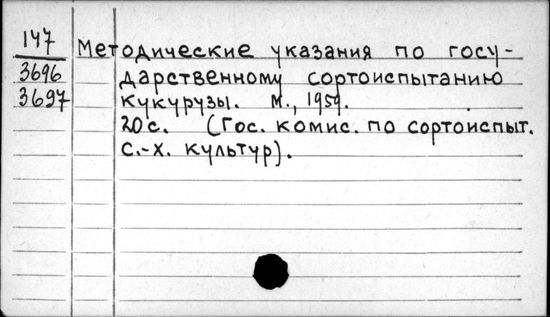 147
3696
3697
Методические указания по госу-
дарственному сортоиспытанию
кукурузы. М., 1959.
20 с. (Гос. комис. по сортоиспыт.
с.-х. культур).